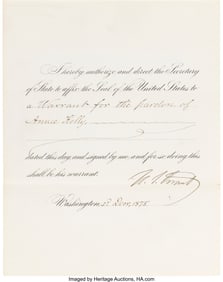 I hereby authorize and direct the Secretary
of State to affix the Seal of the United States to
a Warrant for the pardon of
Annie Kelly,
dated this day and signed by me, and for so doing this
shall be his warrant.
U. S. Grant
Washington, Decr. 1875
Imaged by Heritage Auctions, HA.com